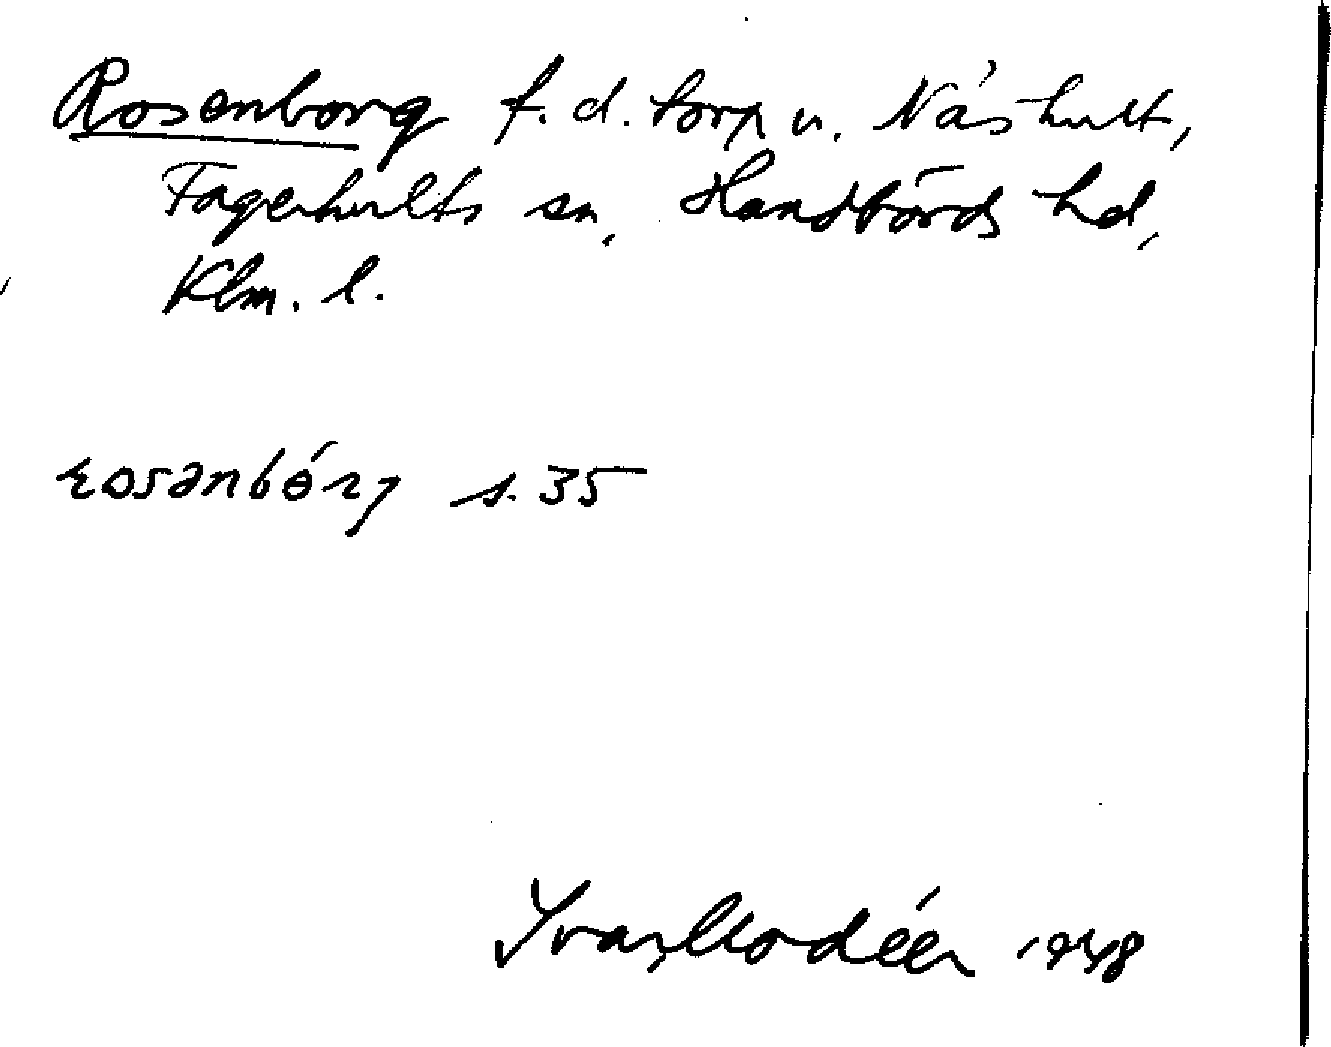 Rosenborg f.d. torp u. Näshult,
Fagerhults sn, Handbörds hd,
Klm. l.
rosənbórj s. 35
Ivar Modéer 1948